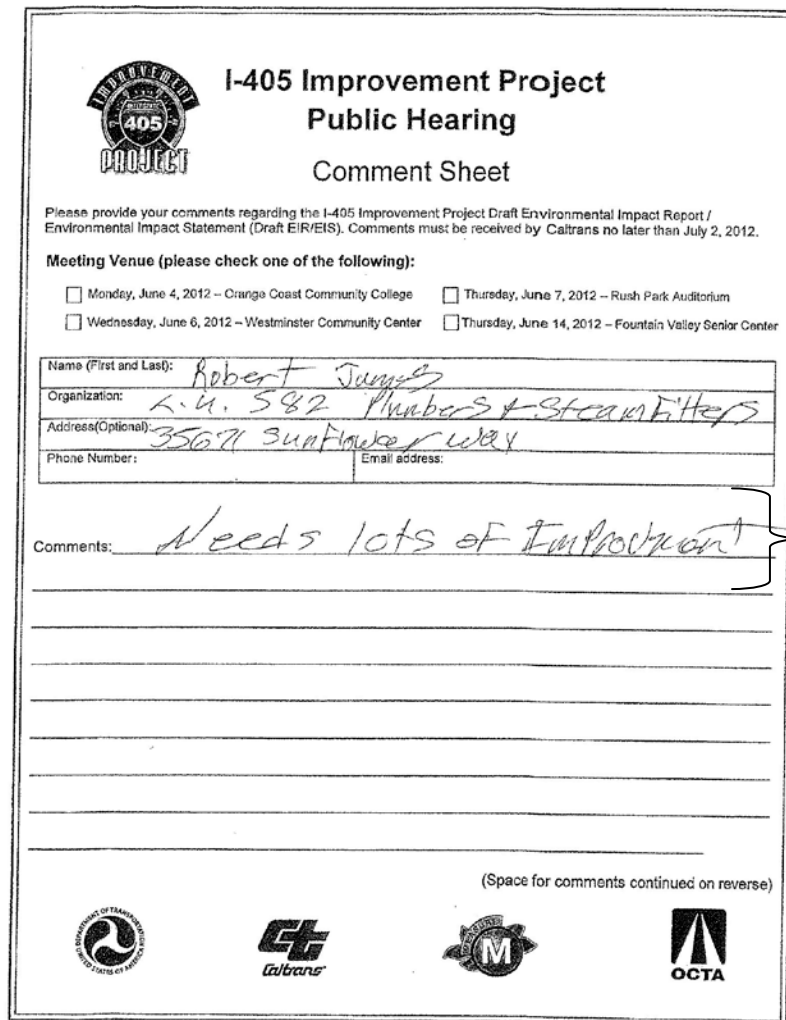 IMPROVEMENT
INTERSTATE
405
PROJECT
I-405 Improvement Project
Public Hearing
Comment Sheet
Please provide your comments regarding the I-405 Improvement Project Draft Environmental Impact Report /
Environmental Impact Statement (Draft EIR/EIS). Comments must be received by Caltrans no later than July 2, 2012.
Meeting Venue (please check one of the following):
Monday, June 4, 2012 – Orange Coast Community College
Thursday, June 7, 2012 – Rush Park Auditorium
Wednesday, June 6, 2012 – Westminster Community Center
Thursday, June 14, 2012 – Fountain Valley Senior Center
Name (First and Last): Robert
Organization: L.U. 582 Plumbers & SteamFitters
Address(Optional): 35671 SunFlower way
Phone Number:
Email address:
Comments: Needs lots of
(Space for comments continued on reverse)
DEPARTMENT OF TRANSPORTATION
UNITED STATES OF AMERICA
Ct
Caltrans
MEASURE
M
OCTA